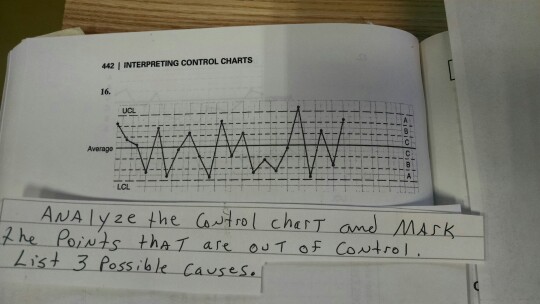 442 | INTERPRETING CONTROL CHARTS
16.
UCL
A
B
C
Average
C
B
A
LCL
ANAlyze the Control charT and MArk
the Points thAT are ouT of Control.
List 3 Possible Causes.